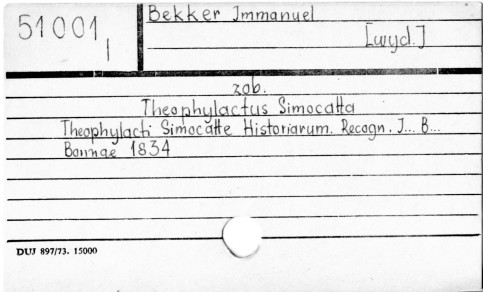 51001,
I
Bekker Immanuel
[wyd.]
zob.
Theophylactus Simocatta
Theophylacti Simocatte Historiarum. Recogn. I... B...
Bonnae 1834
DUJ 897/73. 15000